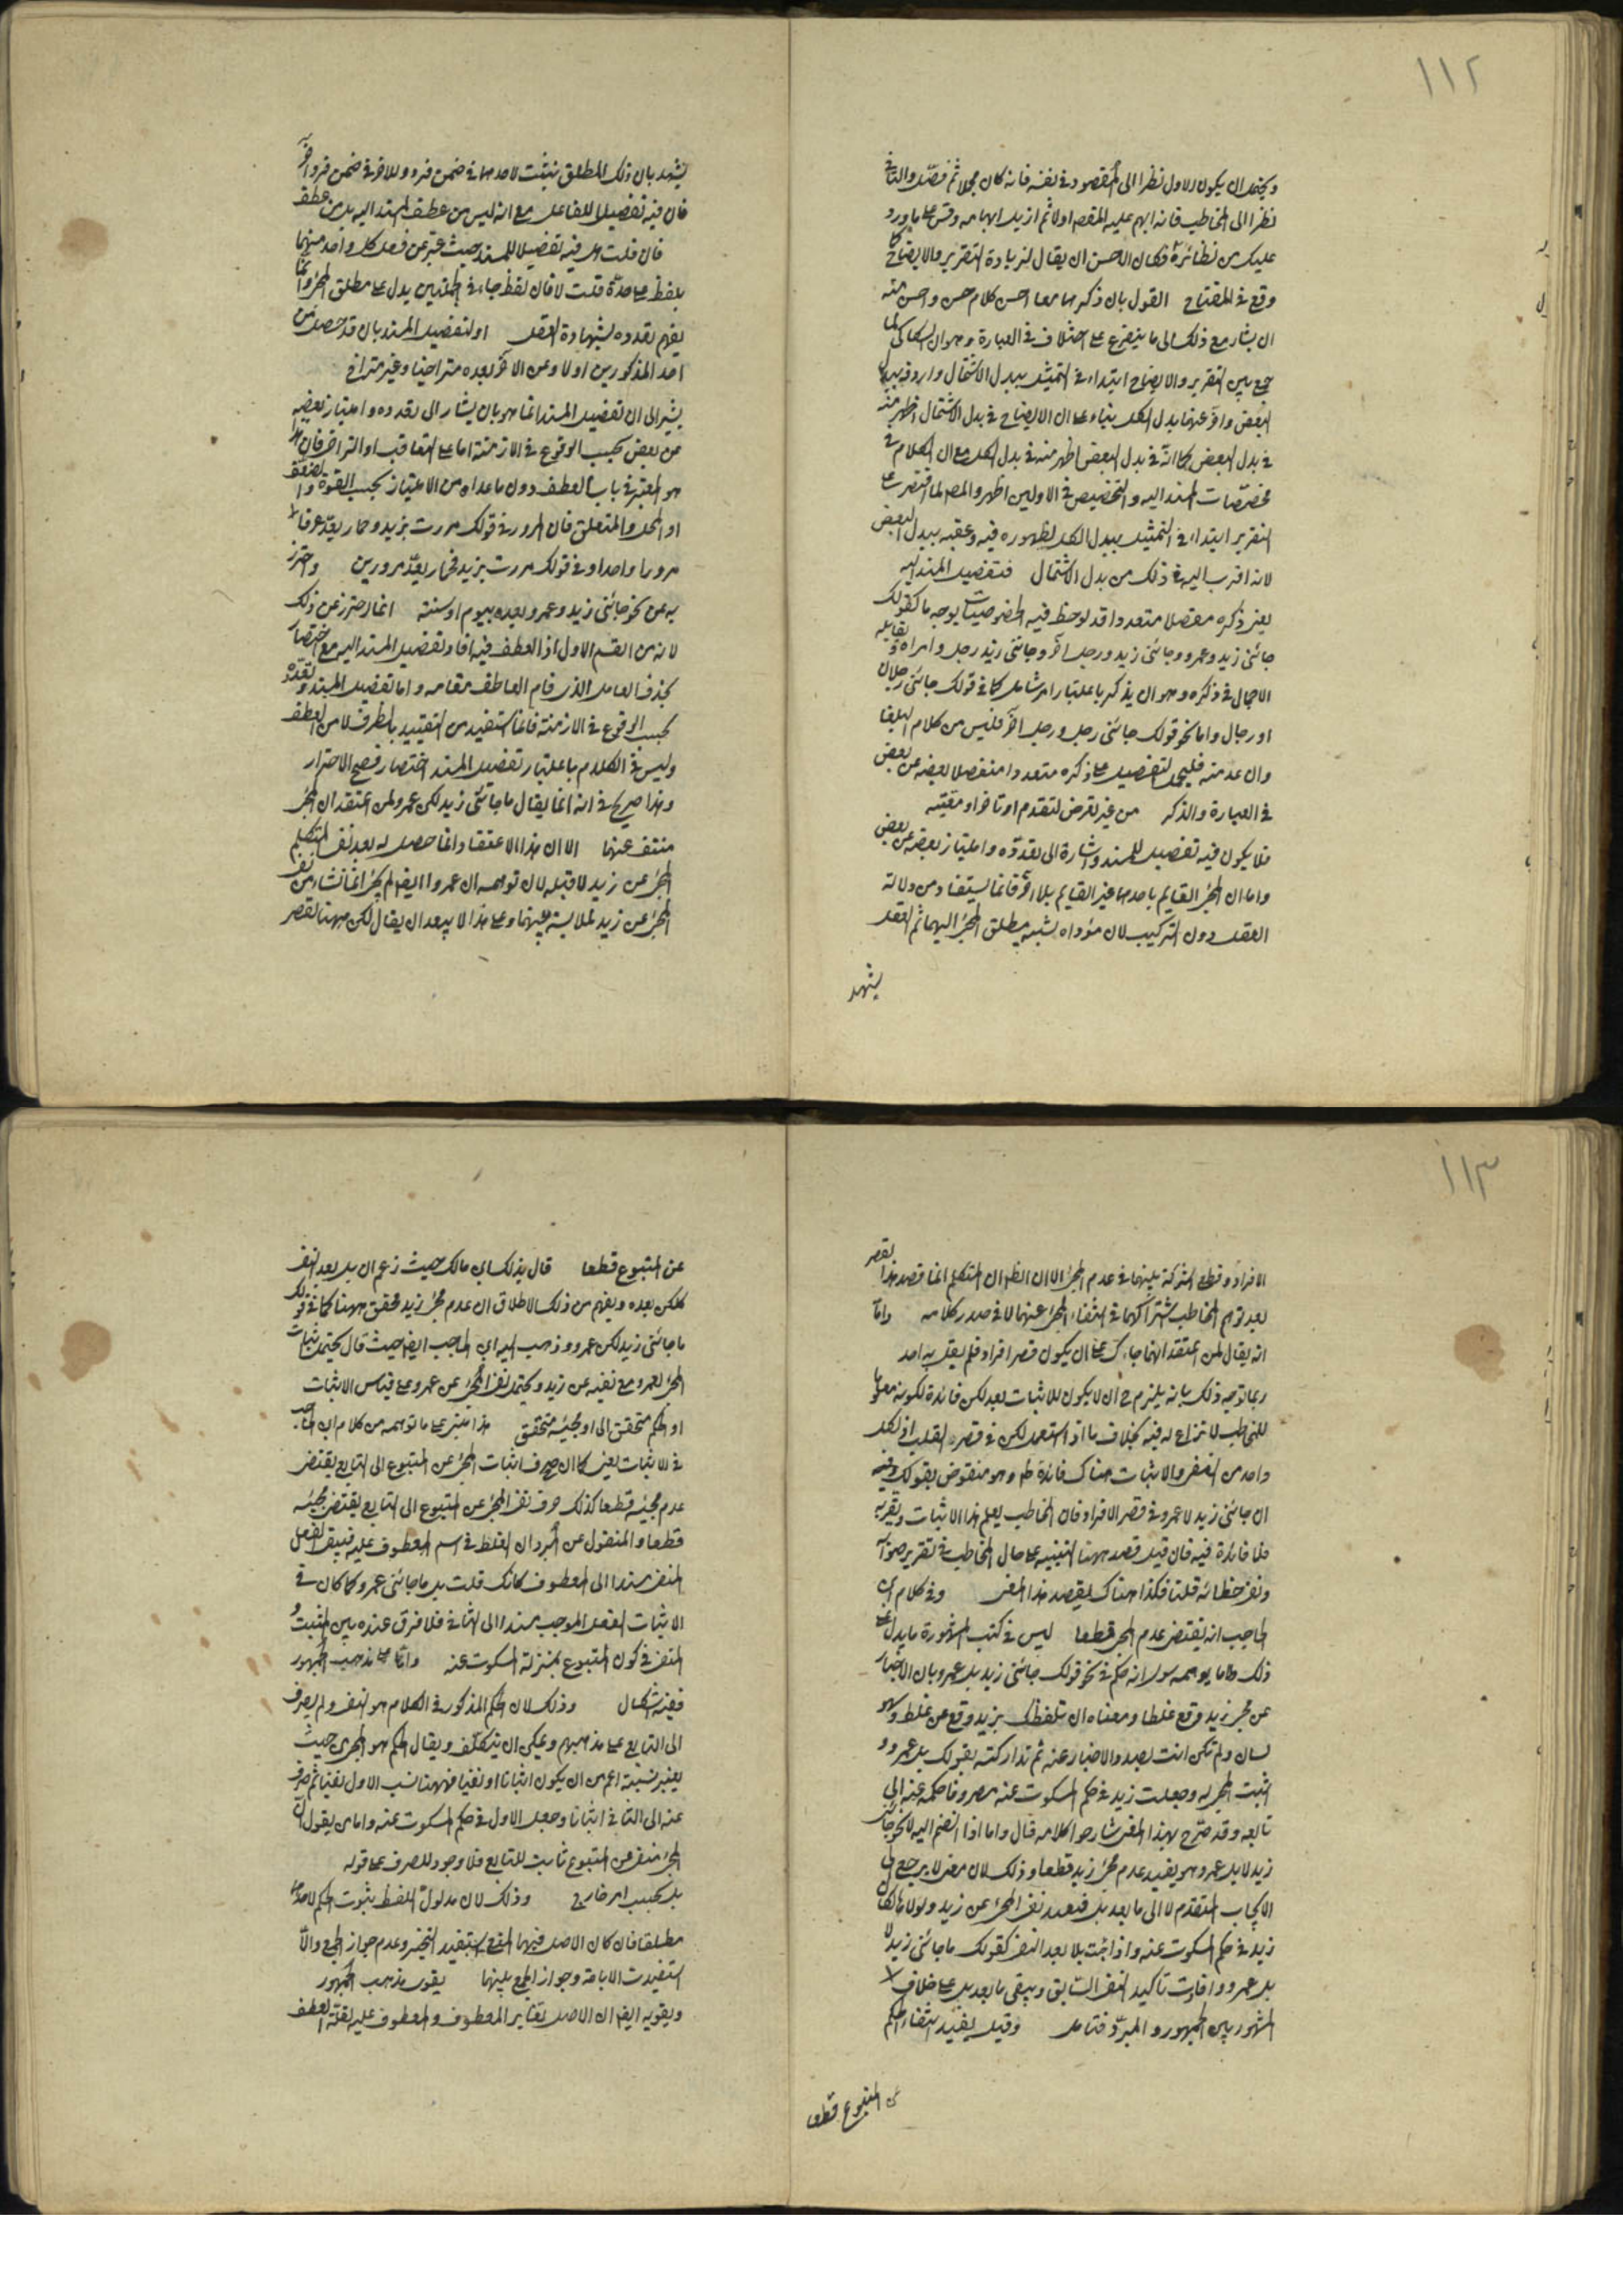 ١١٢
ويحتمل ان يكون الاول نظرا الى المقصود في نفسه فانه كان مجملا ثم فصل والثاني
نظرا الى المخاطب فانه ابهم عليه المقصد اولا ثم ازيل ابهامه وقس على ما ورد
عليك من نظائره فكان الاحسن ان يقال لزيادة التقرير والايضاح كما
وقع في المفتاح القول بان ذكرهما معا احسن كلام حسن واحسن منه
ان يشار مع ذلك الى ما يتفرع على اختلاف في العبارة وهو ان السكاكي لما
جمع بين التقرير والايضاح ابتداء في التمثيل ببدل الاشتمال واردفه ببدل
البعض واخر عنهما بدل الكل بناء على ان الايضاح في بدل الاشتمال اظهر منه
في بدل البعض كما انه في بدل البعض اظهر منه في بدل الكل مع ان الكلام في
مخصصات المسند اليه والتخصيص في الاولين اظهر والمص لما اقتصر على
التقرير ابتداء في التمثيل ببدل الكل لظهوره فيه وعقبه ببدل البعض
لانه اقرب اليه في ذلك من بدل الاشتمال فتفصيل المسند اليه
يعني ذكره مفصلا متعددا قد لوحظ فيه الخصوصيات بوجه ما كقولك
جائني زيد وعمرو وجائني زيد ورجل آخر وجائني زيد رجل وامراة ويقابله
الاجمال في ذكره وهو ان يذكر باعتبار امر شامل كما في قولك جائني رجلان
او رجال واما نحو قولك جائني رجل ورجل آخر فليس من كلام البلغا
وان عد منه فليحمل التفصيل على ذكره متعددا منفصلا بعضه عن بعض
في العبارة والذكر من غير تعرض لتقدم او تاخر او معية
فلا يكون فيه تفصيل للمسند واشارة الى تعدده وامتياز بعضه عن بعض
واما ان المجئ القايم باحدهما غير القايم بالآخر فانما يستفاد من دلالة
العقل دون التركيب لان مؤداه نسبة مطلق المجئ اليهما ثم العقل
يشهد
يشهد بان ذلك المطلق يثبت لاحدهما في ضمن فرد وللاخر في ضمن فرد آخر
فان فيه تفصيلا للفاعل مع انه ليس من عطف المسند اليه بل من عطف
فان قلت هل فيه تفصيلا للمسند حيث عبر عن فعل كل واحد منهما
بلفظ على حدة قلت لا فان لفظ جاء في الجملتين يدل على مطلق المجئ وانما
يفهم تعدده بشهادة العقل او لتفصيل المسند بان قد حصل من
احد المذكورين اولا ومن الآخر بعده متراخيا وغير متراخ
يشير الى ان تفصيل المسند انما هو بان يشار الى تعدده وامتياز بعضه
من بعض بحسب الوقوع في الازمنة اما على التعاقب او التراخي فان هذا
هو المعتبر في باب العطف دون ما عداه من الامتياز بحسب القوة والضعف
او المحل والمتعلق فان المرور في قولك مررت بزيد وحمار يعد عرفا
مرورا واحدا وفي قولك مررت بزيد فحمار يعد مرورين واحترز
به عن نحو جائني زيد وعمرو بعده بيوم او سنة انما احترز عن ذلك
لانه من القسم الاول اذ العطف فيه افاد تفصيل المسند اليه مع اختصار
بحذف العامل الذي قام العاطف مقامه واما تفصيل المسند وتعدده
بحسب الوقوع في الازمنة فانما استفيد من التقييد بالظرف لا من العطف
وليس في الكلام باعتبار تفصيل المسند اختصار فصح الاحتراز
وهذا صريح في انه انما يقال ما جائني زيد لكن عمرو لمن اعتقد ان المجئ
منتف عنهما الا ان هذا الاعتقاد انما حصل له بعد نفي المتكلم
المجئ عن زيد لا قبله لان توهمه ان عمروا ايضا لم يجئ انما نشا من نفي
المجئ عن زيد لملابسة بينهما وعلى هذا لا يبعد ان يقال لكن ههنا لقصر
١١٣
الافراد وقطع الشركة بينهما في عدم المجئ الا ان الظ ان المتكلم انما قصد هذا القصر
بعد توهم المخاطب اشتراكهما في انتفاء المجئ عنهما لا في صدر كلامه واما
انه يقال لمن اعتقد انهما جاءاك على ان يكون قصر افراد فلم يقل به احد
ربما توجه ذلك بانه يلزم ح ان لا يكون للاثبات بعد لكن فائدة لكونه معلوما
للمخاطب لا نزاع له فيه بخلاف ما اذا استعمل لكن في قصر القلب اذ لكل
واحد من النفي والاثبات هناك فائدة ظ وهو منقوض بقولك وفيه
ان جائني زيد لا عمرو في قصر الافراد فان المخاطب يعلم هذا الاثبات ويقر به
فلا فائدة فيه فان قيل قصد ههنا التنبيه على حال المخاطب في تقرير صوابه
ونفي خطائه قلنا فكذا هناك ليقصد هذا المعنى وفي كلام ابن
الحاجب انه يقتضي عدم المجئ قطعا ليس في كتبه المشهورة ما يدل على
ذلك واما ما يوهمه من لانه حكم في نحو قولك جائني زيد بل عمرو بان الاخبار
عن مجئ زيد وقع غلطا ومعناه ان تلفظك بزيد وقع عن غلط وسهو
لسان ولم تكن انت بصدد الاخبار عنه ثم تداركته بقولك بل عمرو و
اثبت المجئ له وجعلت زيد في حكم المسكوت عنه مصروفا حكمه عنه الى
تابعه وقد صرح بهذا المعنى شارحوا كلامه قال واما اذا انضم اليه لا نحو جائني
زيد لا بل عمرو هو يفيد عدم مجئ زيد قطعا وذلك لان معنى لا يرجع الى
الايجاب المتقدم لا الى ما بعد بل فتفيد نفي المجئ عن زيد ولولا ها لكان
زيد في حكم المسكوت عنه واذا جئت بلا بعد النفي كقولك ما جائني زيد لا
بل عمرو وافادت تاكيد النفي السابق ويبقى ما بعد بل على خلاف
المشهور بين الجمهور والمبرد فتامل وقيل يفيد انتفاء الحكم
عن المتبوع قطعا
عن المتبوع قطعا قال بذلك ابن مالك حيث زعم ان بل بعد النفي
كلكن بعده ويفهم من ذلك الاطلاق ان عدم مجئ زيد محقق ههنا كما في قولك
ما جائني زيد لكن عمرو وذهب اليه ابن الحاجب ايضا حيث قال يحتمل اثبات
المجئ لعمرو مع نفيه عن زيد ويحتمل نفي المجئ عن عمرو على قياس الاثبات
او الحكم متحقق الى او مجيئه متحقق هذا مبني على ما توهمه من كلام ابن الحاجب
في الاثبات يعني كما ان صرف اثبات المجئ عن المتبوع الى التابع يقتضي
عدم مجيئه قطعا كذلك صرف نفي المجئ عن المتبوع الى التابع يقتضي مجيئه
قطعا والمنقول عن المبرد ان الغلط في اسم المعطوف عليه فيبقى الفعل
المنفي مسندا الى المعطوف كانك قلت بل ما جائني عمرو كما كان في
الاثبات الفعل الموجب مسندا الى الثاني فلا فرق عنده بين المثبت و
المنفي في كون المتبوع بمنزلة المسكوت عنه واما على مذهب الجمهور
ففيه اشكال وذلك لان الحكم المذكور في الكلام هو النفي ولم يصرف
الى التابع على مذهبهم ويمكن ان يتكلف ويقال الحكم هو المجرى حيث
يعتبر نسبته اعم من ان يكون اثباتا او نفيا فههنا نسب الاول نفيا ثم صرف
عنه الى الثاني اثباتا وجعل الاول في حكم المسكوت عنه واما من يقول ان
المجئ منفي عن المتبوع ثابت للتابع فلا وجود للصرف على قوله
بل بحسب امر خارج وذلك لان مدلول اللفظ ثبوت الحكم لاحدهما
مطلقا فان كان الاصل فيهما المنع استفيد التخيير وعدم جواز الجمع والا
استفيدت الاباحة وجواز الجمع بينهما يقوى مذهب الجمهور
ويقويه ايضا ان الاصل تغاير المعطوف والمعطوف عليه لقلة العطف